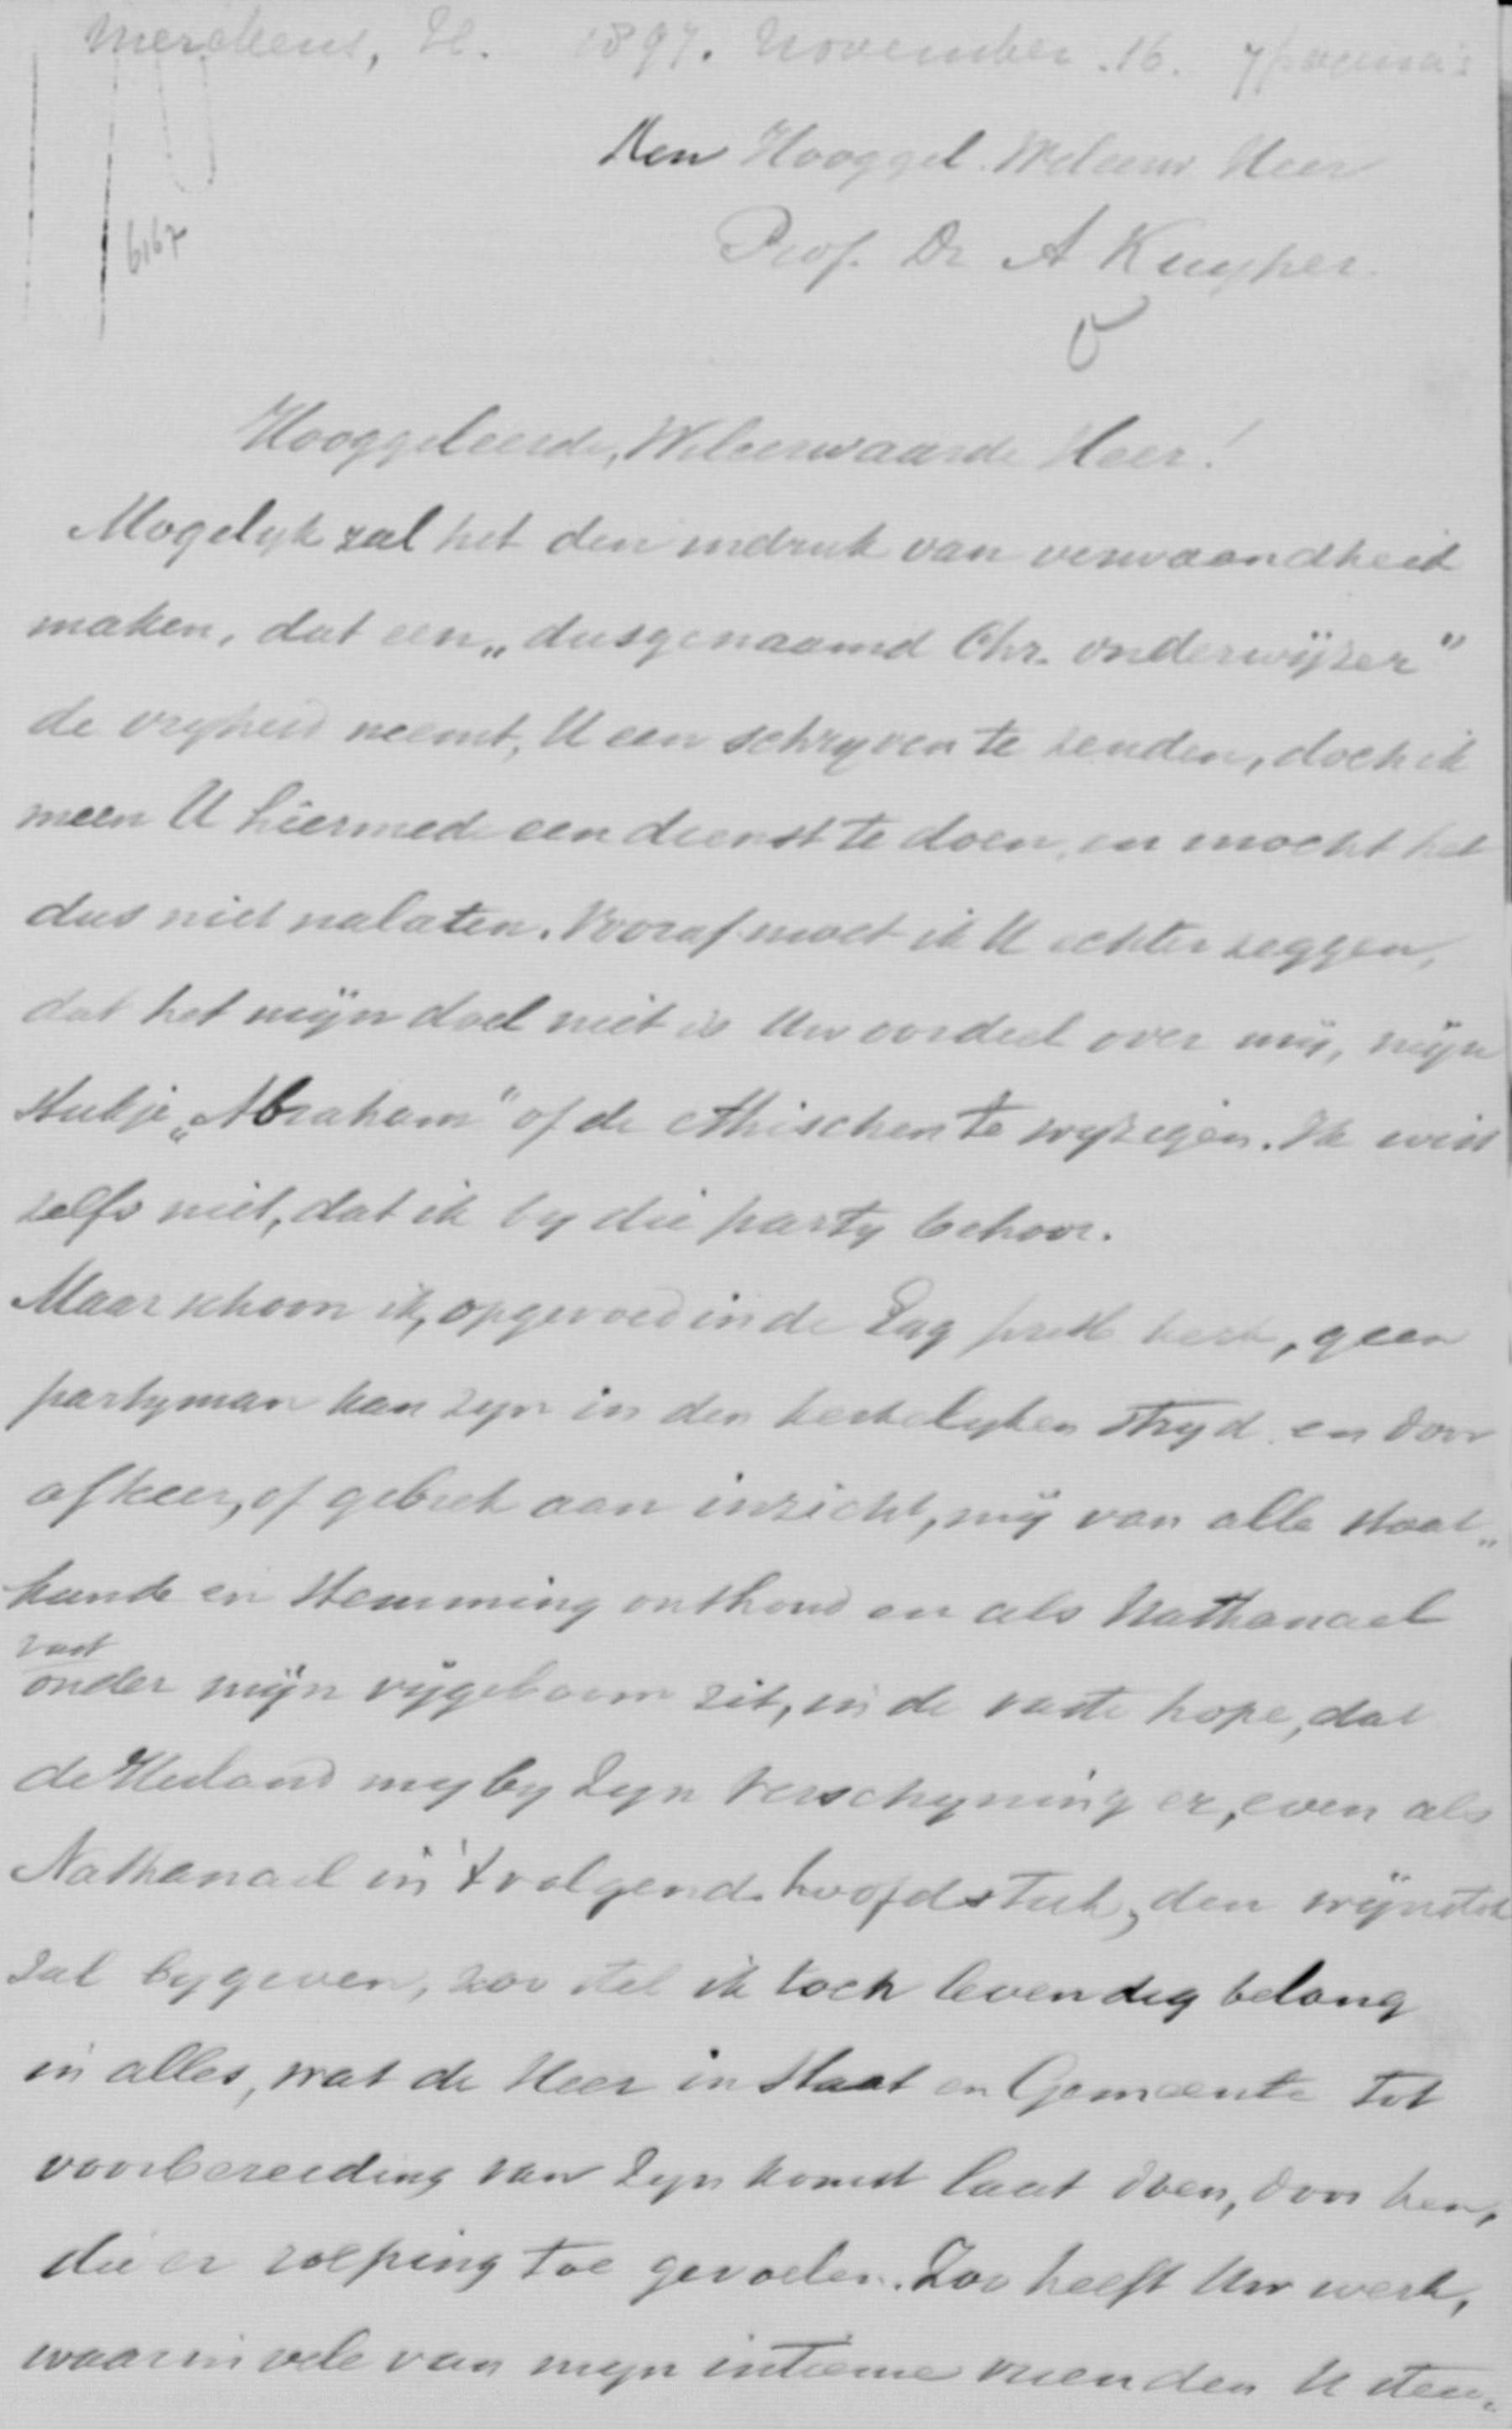 Merckens, H. 1897. November. 16. 7 pagina's
6167
Den Hooggel. Weleerw Heer
Prof. Dr A Kuyper.
Hooggeleerde, Weleerwaarde Heer!
Mogelyk zal het den indruk van verwaandheid
maken, dat een „dusgenaamd Chr. onderwijzer"
de vryheid neemt, U een schryven te zenden, doch ik
meen U hiermede een dienst te doen, en mocht het
dus niet nalaten. Vooraf moet ik U echter zeggen,
dat het mijn doel niet is Uw oordeel over mij, mijn
stukje „Abraham" of de ethischen te wyzigen. Ik wist
zelfs niet, dat ik by die party behoor.
Maar schoon ik, opgevoed in de kerk, geen
partyman kan zyn in den kerkelyken stryd en door
afkeer, of gebrek aan inzicht, mij van alle staat„
kunde en stemming onthoud en als Nathanael
vast
onder mijn vijgeboom zit, in de vaste hope, dat
de Heiland my by Zyn verschyning er, even als
Nathanael in 't volgend hoofdstuk, den wijnstok
zal bygeven, zoo stel ik toch levendig belang
in alles, wat de Heer in Staat en Gemeente tot
voorbereiding van Zyn komst laat doen, door hen,
die er roeping toe gevoelen. Zoo heeft Uw werk,
waarin vele van mijn intieme vrienden U steu„